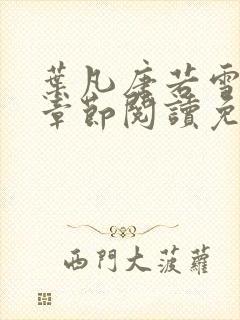 葉凡唐若雪
章節閱讀免
西門大菠蘿